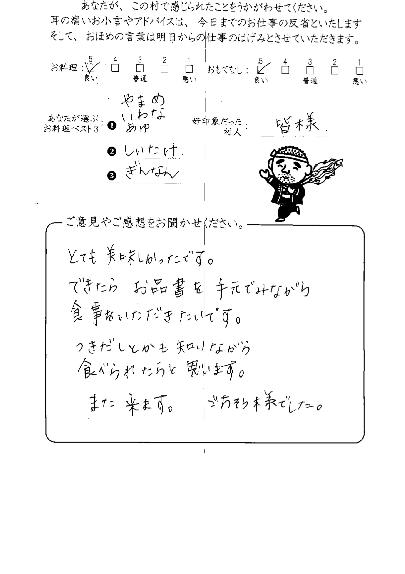 あなたが、この村で感じられたことをうかがわせてください。
耳の痛いお小言やアドバイスは、今日までのお仕事の反省といたします
そして、おほめの言葉は明日からの仕事のはげみとさせていただきます。
お料理： 5 4 3 2 1 おもてなし： 5 4 3 2 1
良い 普通 悪い 良い 普通 悪い
あなたが選ぶ
お料理ベスト3
やまめ
いわな
❶ あゆ
❷ しいたけ
❸ ぎんなん
好印象だった対人 皆様
ご意見やご感想をお聞かせください。
とても美味しかったです。
できたら お品書を手元でみながら
食事をいただきたいです。
つきだしとかも知りながら
食べられたらと思います。
また来ます。 ごちそう様でした。